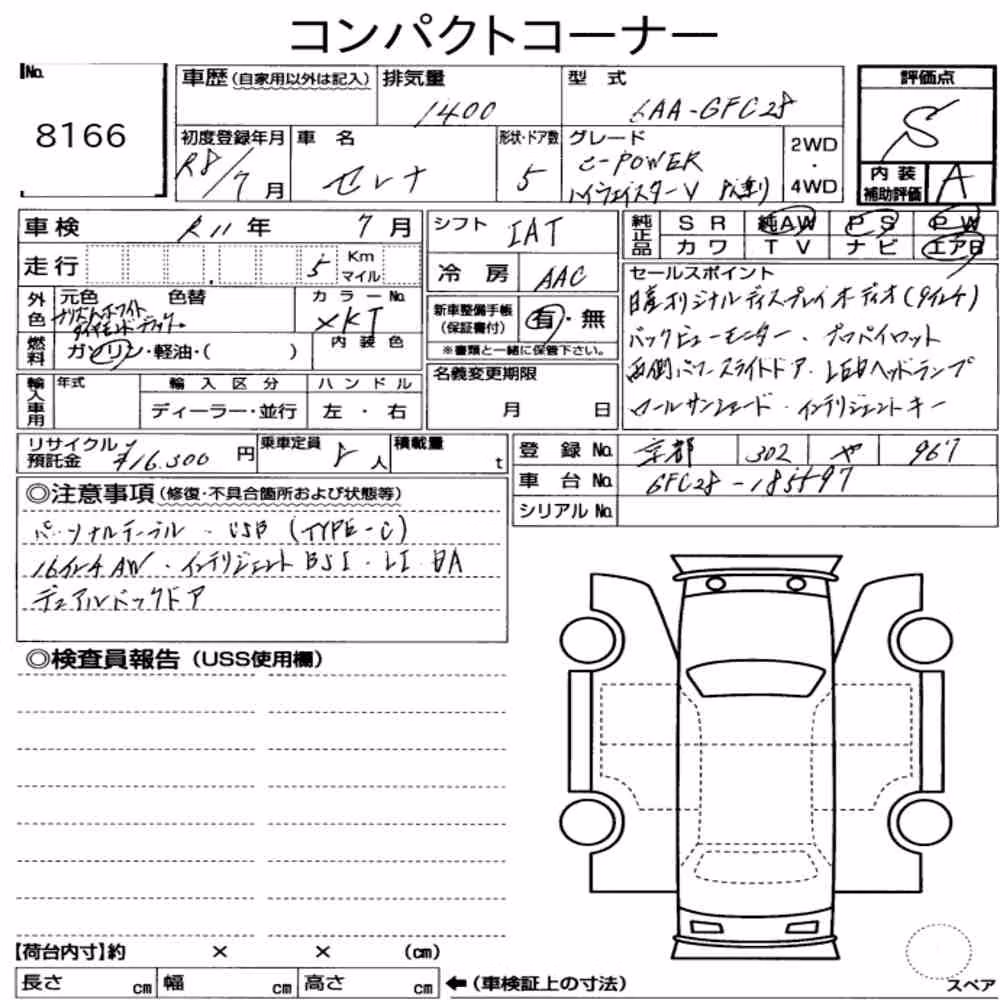 コンパクトコーナー
No.
8166
車歴 (自家用以外は記入)
排気量
1400
型式
6AA-GFC28
評価点
S
初度登録年月
R8/7月
車名
セレナ
形状・ドア数
5
グレード
e-POWER
ハイウェイスターV
2WD
・
4WD
内装
補助評価
A
車検 R11年 7月
シフト IAT
純正品
SR 純AW PS PW
カワ TV ナビ エアB
走行 5 Km マイル
冷房 AAC
セールスポイント
日産オリジナルディスプレイオーディオ(9インチ)
バックビューモニター・プロパイロット
両側パワースライドドア・LEDヘッドランプ
ロールサンシェード・インテリジェントキー
外色
元色 色替
プリズムホワイト
ダイヤモンドブラック
カラーNo.
XKJ
内装色
新車整備手帳
(保証書付)
有・無
※書類と一緒に保管下さい。
燃料
ガソリン・軽油・( )
輸入車用
年式
輸入区分
ハンドル
ディーラー・並行
左・右
名義変更期限
月 日
リサイクル
預託金
¥16,300円
乗車定員
8人
積載量
t
登録No. 京都 302 や 967
車台No. GFC28-185597
シリアルNo.
◎注意事項 (修復・不具合箇所および状態等)
パーソナルテーブル・USB (TYPE-C)
16インチAW・インテリジェントBSI・LI・DA
デュアルバックドア
◎検査員報告 (USS使用欄)
【荷台内寸】約 × × (cm)
長さ cm 幅 cm 高さ cm
←(車検証上の寸法)
スペア